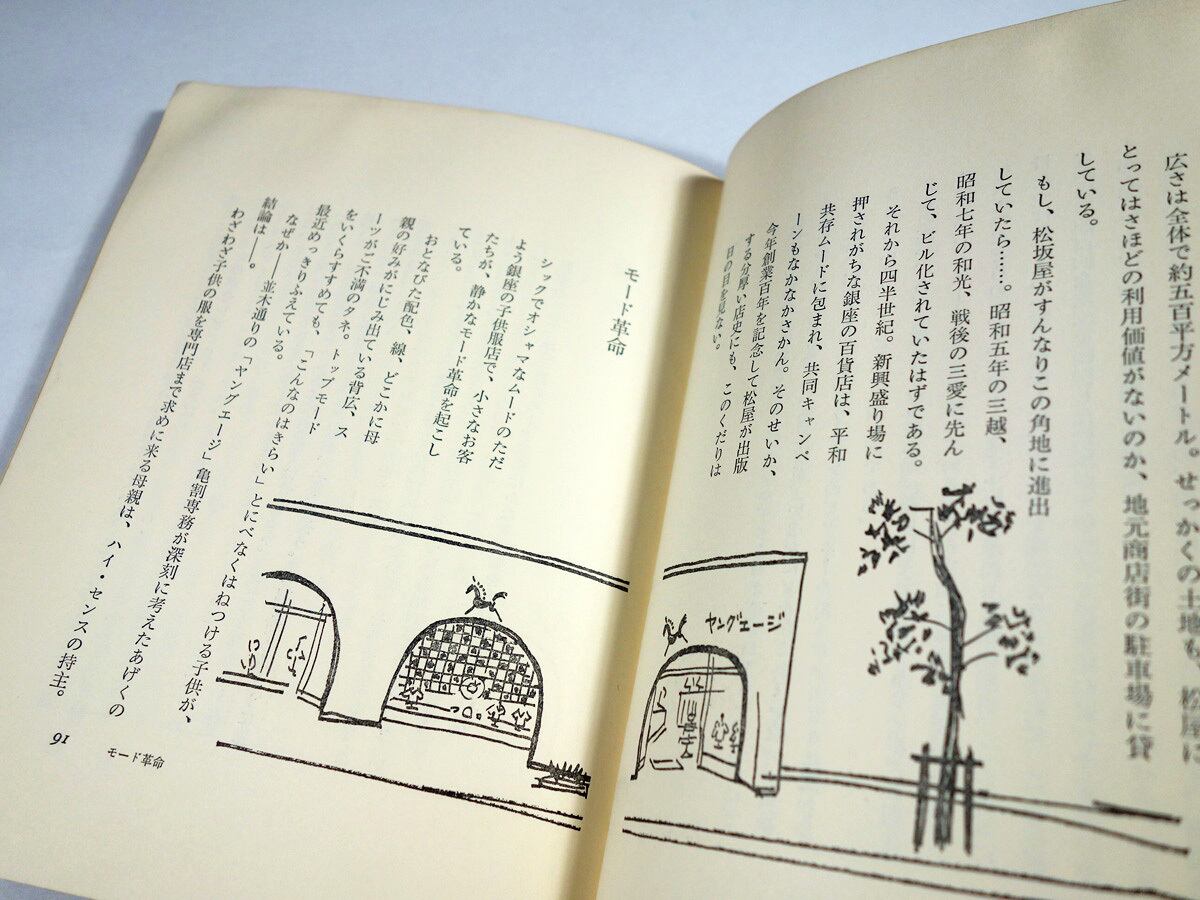 広さは全体で約五百平方メートル。せっかくの土地も、松屋に
とってはさほどの利用価値がないのか、地元商店街の駐車場に貸
している。
もし、松坂屋がすんなりこの角地に進出
していたら……。昭和五年の三越、
昭和七年の和光、戦後の三愛に先ん
じて、ビル化されていたはずである。
それから四半世紀。新興盛り場に
押されがちな銀座の百貨店は、平和
共存ムードに包まれ、共同キャンペ
ーンもなかなかさかん。そのせいか、
今年創業百年を記念して松屋が出版
する分厚い店史にも、このくだりは
日の目を見ない。
ヤングエージ
モード革命
シックでオシャマなムードのただ
よう銀座の子供服店で、小さなお客
たちが、静かなモード革命を起こし
ている。
おとなびた配色、線、どこかに母
親の好みがにじみ出ている背広、ス
ーツがご不満のタネ。トップモード
をいくらすすめても、「こんなのはきらい」とにべなくはねつける子供が、
最近めっきりふえている。
なぜか――並木通りの「ヤングエージ」亀割専務が深刻に考えたあげくの
結論は――。
わざわざ子供の服を専門店まで求めに来る母親は、ハイ・センスの持主。
91
モード革命